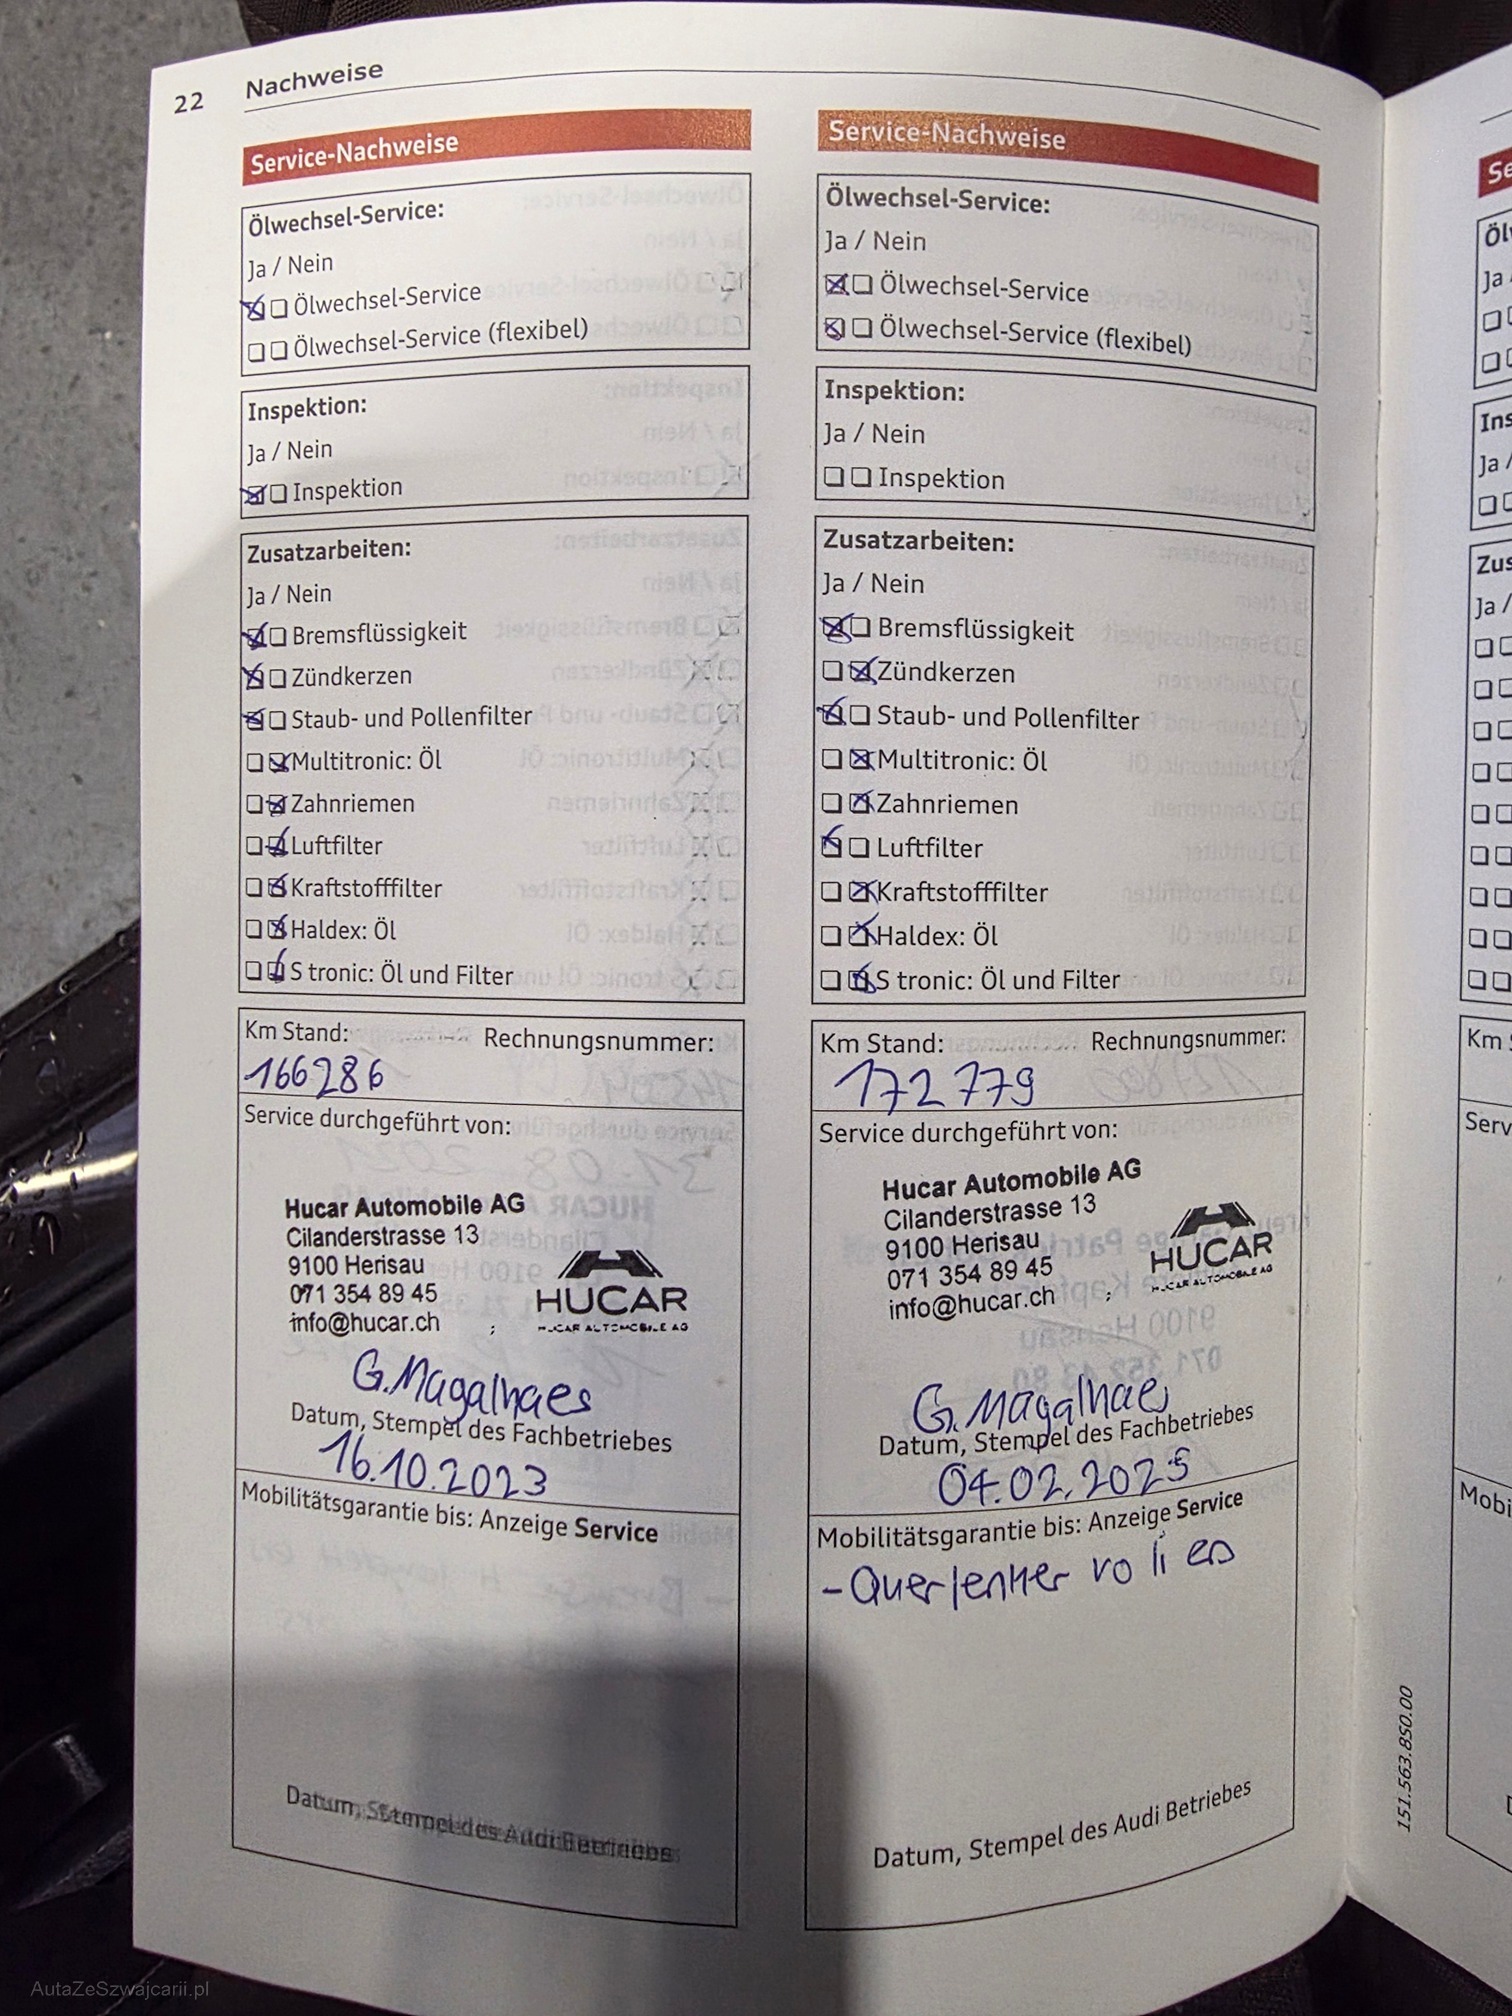 22 Nachweise
Service-Nachweise
Ölwechsel-Service:
Ja / Nein
Ölwechsel-Service
Ölwechsel-Service (flexibel)
Inspektion:
Ja / Nein
Inspektion
Zusatzarbeiten:
Ja / Nein
Bremsflüssigkeit
Zündkerzen
Staub- und Pollenfilter
Multitronic: Öl
Zahnriemen
Luftfilter
Kraftstofffilter
Haldex: Öl
S tronic: Öl und Filter
Km Stand: Rechnungsnummer:
166286
Service durchgeführt von:
Hucar Automobile AG
Cilanderstrasse 13
9100 Herisau
071 354 89 45
info@hucar.ch
HUCAR
HUCAR AUTOMOBILE AG
G. Magalhaes
Datum, Stempel des Fachbetriebes
16.10.2023
Mobilitätsgarantie bis: Anzeige Service
Datum, Stempel des Audi Betriebes
Service-Nachweise
Ölwechsel-Service:
Ja / Nein
Ölwechsel-Service
Ölwechsel-Service (flexibel)
Inspektion:
Ja / Nein
Inspektion
Zusatzarbeiten:
Ja / Nein
Bremsflüssigkeit
Zündkerzen
Staub- und Pollenfilter
Multitronic: Öl
Zahnriemen
Luftfilter
Kraftstofffilter
Haldex: Öl
S tronic: Öl und Filter
Km Stand: Rechnungsnummer:
172 779
Service durchgeführt von:
Hucar Automobile AG
Cilanderstrasse 13
9100 Herisau
071 354 89 45
info@hucar.ch
HUCAR
HUCAR AUTOMOBILE AG
G. Magalhaes
Datum, Stempel des Fachbetriebes
04.02.2025
Mobilitätsgarantie bis: Anzeige Service
- Querlenker vo li
Datum, Stempel des Audi Betriebes
151.563.850.00
AutaZeSzwajcarii.pl